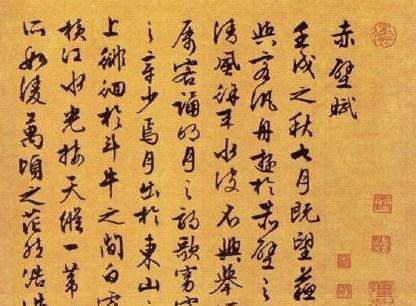 赤壁賦
壬戌之秋七月既望蘇
與客汎舟遊於赤壁之
清風徐來水波不興舉
属客誦明月之詩歌窈
之章少焉月出於東山之
上徘徊於斗牛之間白露
橫江水光接天縱一葦
所如凌萬頃之茫然浩